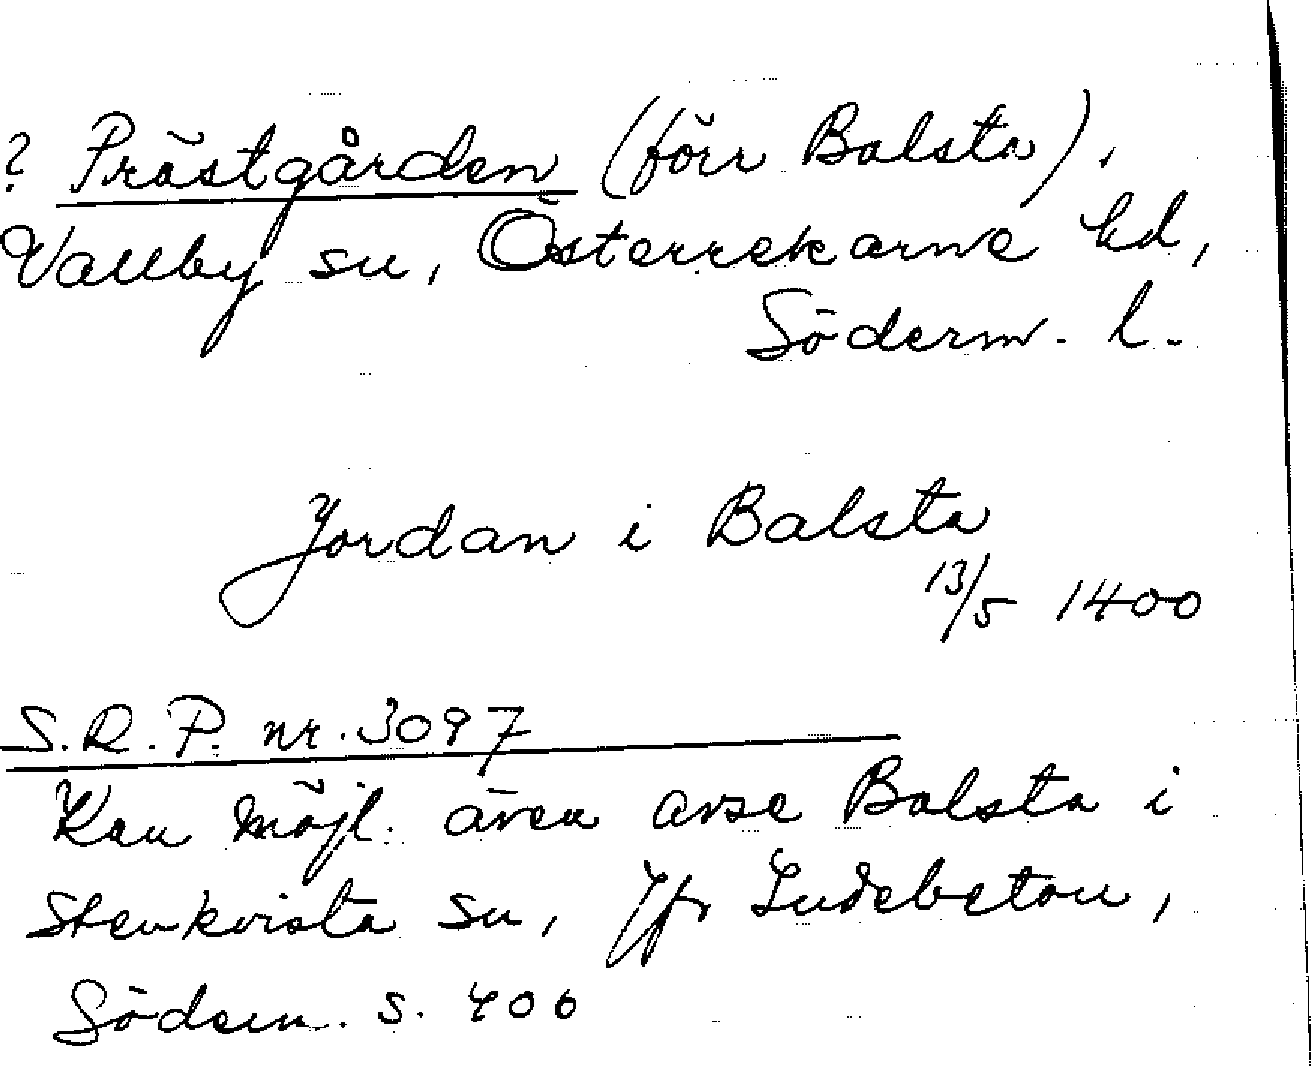 ? Prästgården (förr Balsta),
Vallby sn, Österrekarne hd,
Söderm. l.
Jordan i Balsta
13/5 1400
S.R.P. nr. 3097
Kan möjl. även avse Balsta i
Stenkvista sn, Jfr Indebetou,
Söderm. s. 406